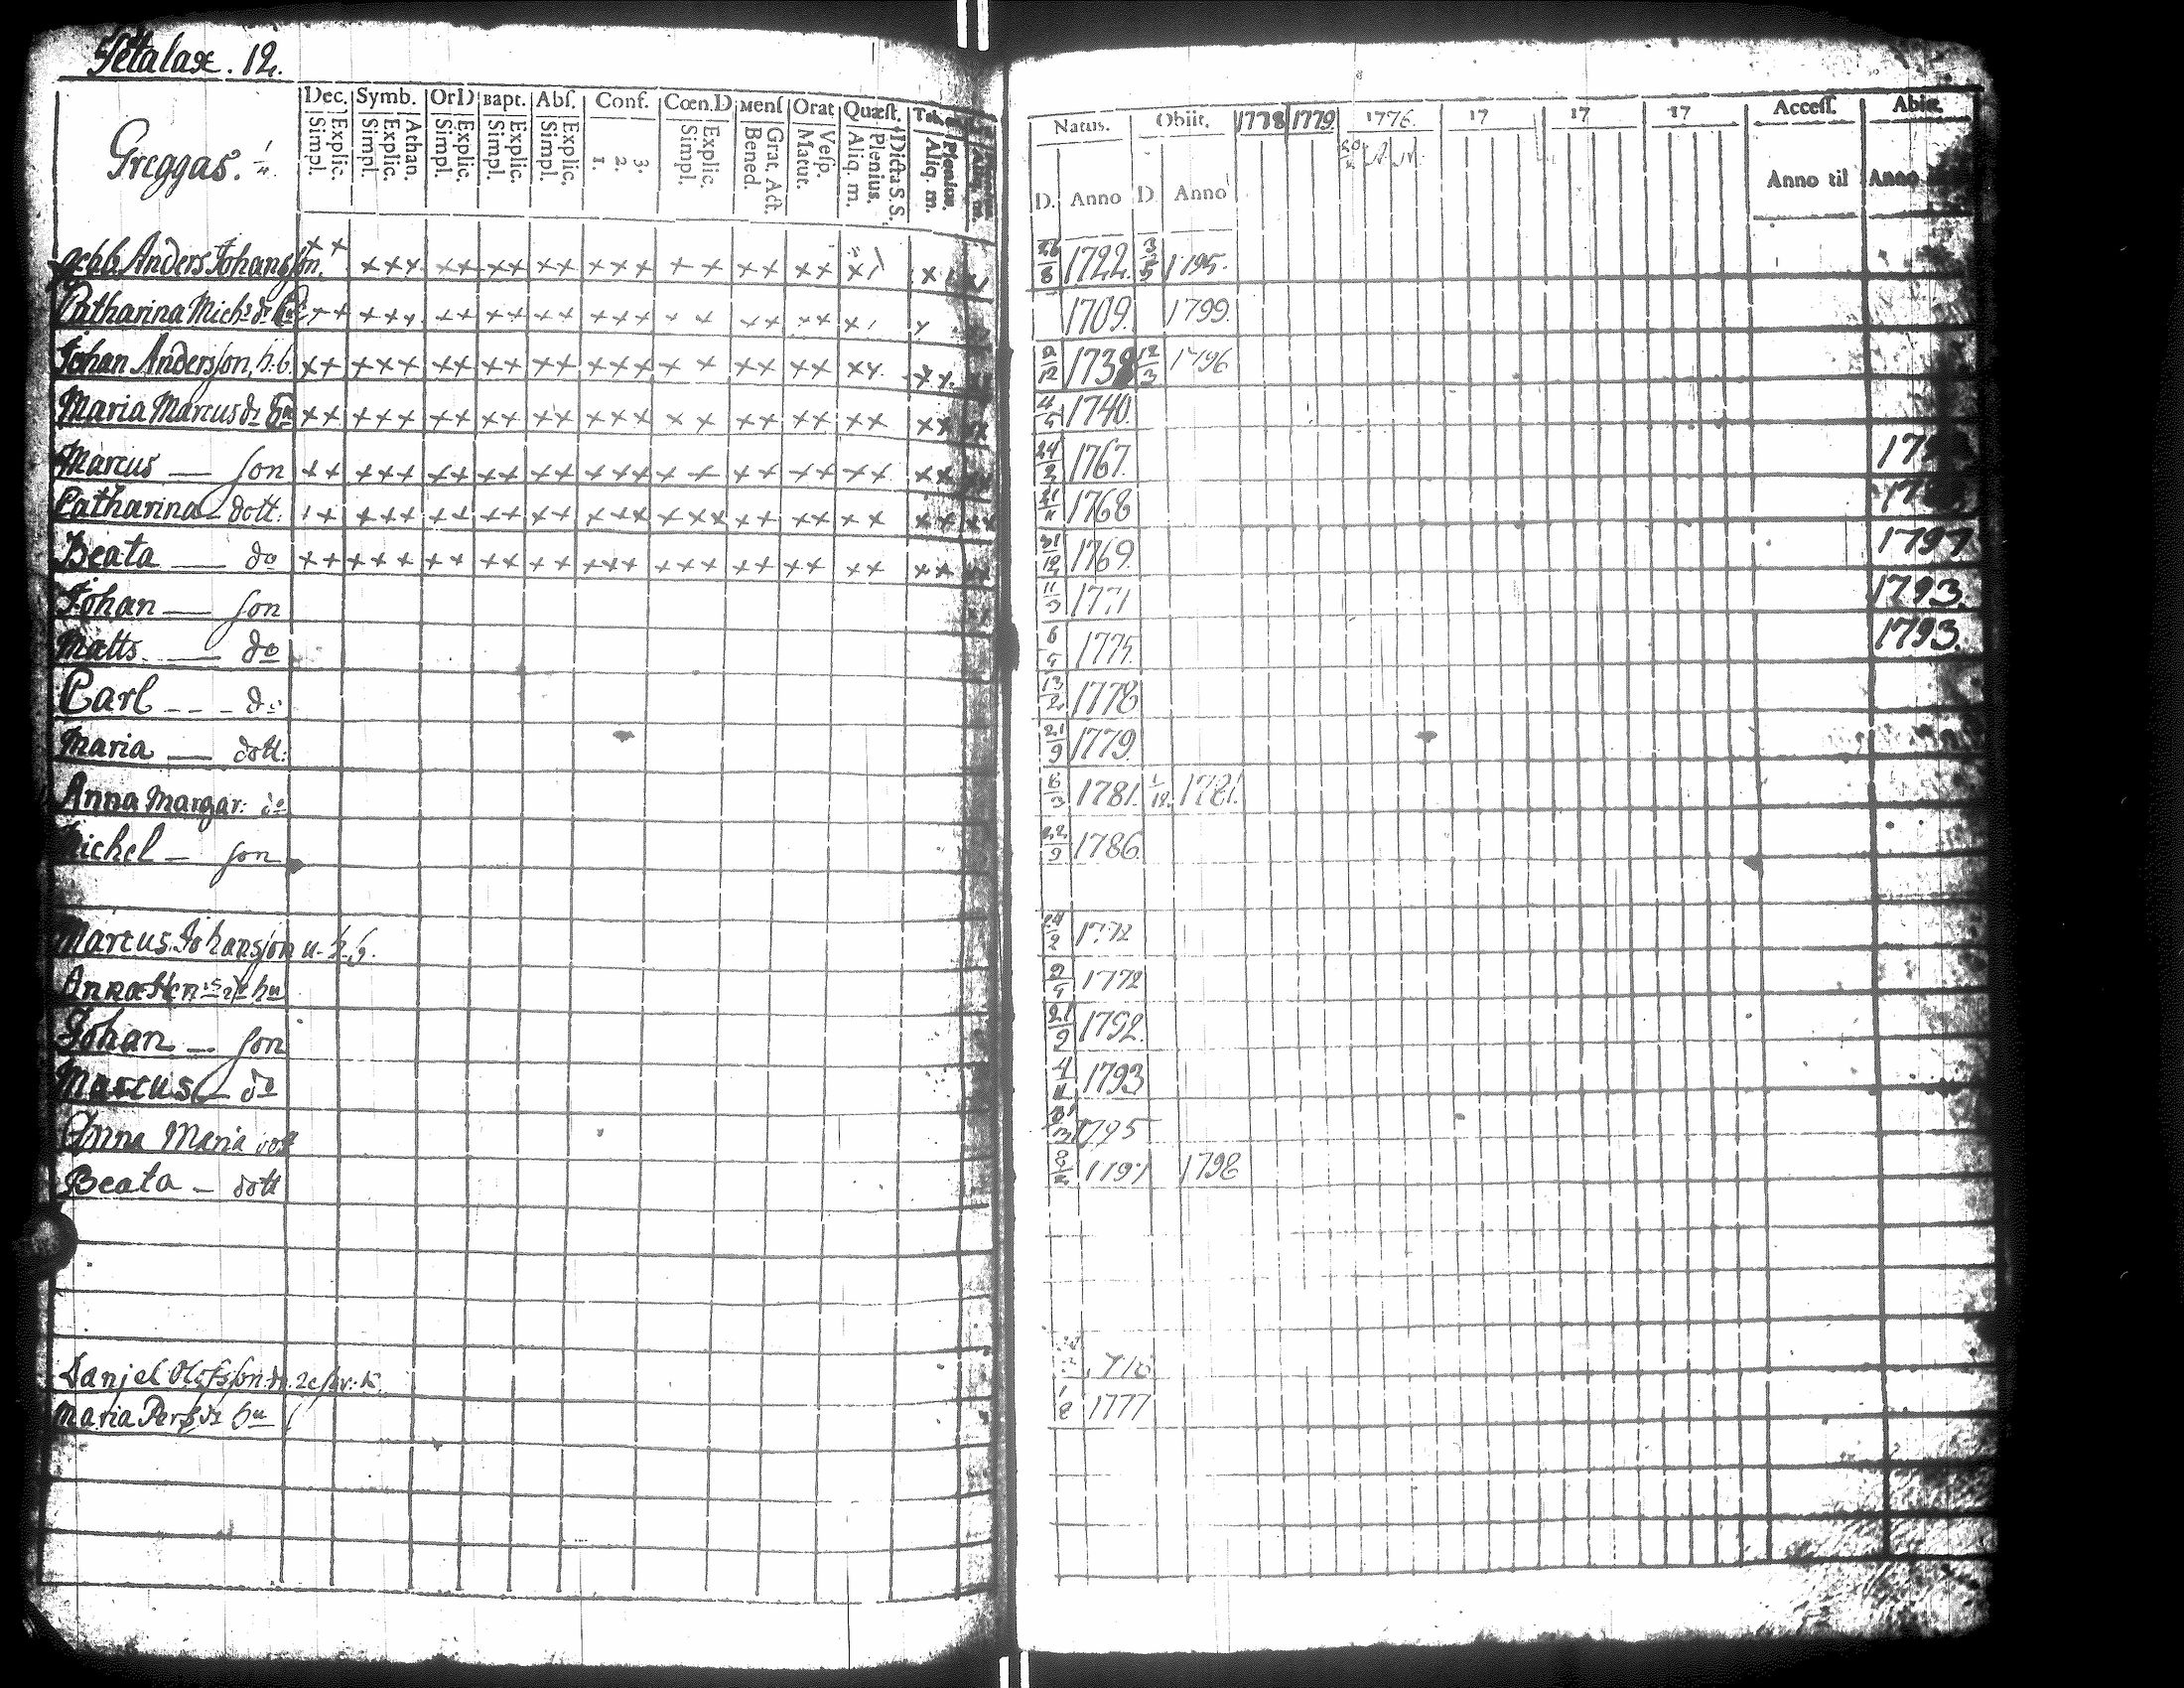 Petalax. 12.
Dec. Symb. OrD Bapt. Abs. Conf. Cœn.D Mens Orat Quæst.
Greggas. 1/4.
Simpl. Explic. Simpl. Explic. Athan. Simpl. Explic. Simpl. Explic. Simpl. Explic. 1. 2. 3. Simpl. Explic. Bened. Grat. Act. Matut. Vesp. Aliq. m. Plenius. Dicta S.S. Aliq. m. Plenius.
Natus. Obiit. 1778 1779. 1776. 17 17 17 Access. Abiit.
D. Anno D Anno Anno til Anno
Anders Johansson. 26/8 1722. 3/5 1795.
Catharina Michs dr hu 1709. 1799.
Johan Andersson, h.b. 2/12 1738 12/3 1796
Maria Marcus dr hu 1740.
Marcus — son 24/2 1767.
Catharina — dott: 1768
Beata — do 31/12 1769. 1797
Johan — son 11/9 1771 1793.
Matts — do 1775. 1793.
Carl - - - do 13/2 1778
Maria — dott: 21/9 1779.
Anna Margar: do 6/3 1781. 1/12. 1781.
Michel — son 22/9 1786.
Marcus Johansson u. h.b. 24/2 1772
Anna Hen:s dr hu 1772
Johan — son 21/9 1792.
Marcus — do 1793
Anna Maria dott 1795
Beata — dott 1797 1798
Danjel Olofsson
Maria Pers dr hu 1/8 1777